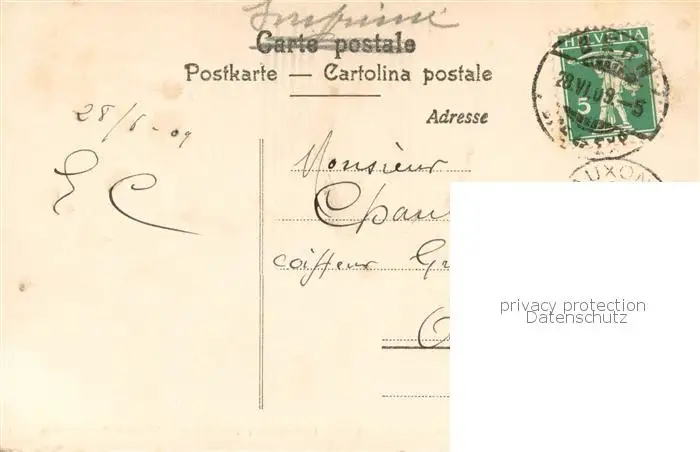 Imprimé
Carte postale
Postkarte — Cartolina postale
Adresse
HELVETIA
5
28 VI 09 – 5
AUXON
28/6 - 09
E C
Monsieur
coiffeur Gr
privacy protection
Datenschutz